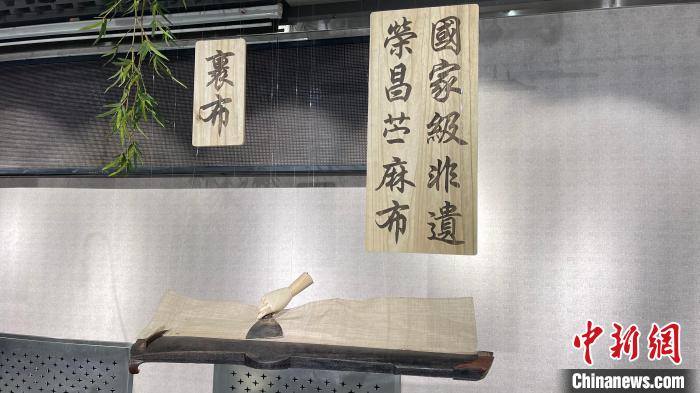 裹布
國家級非遺
榮昌苎麻布
中新網
Chinanews.com